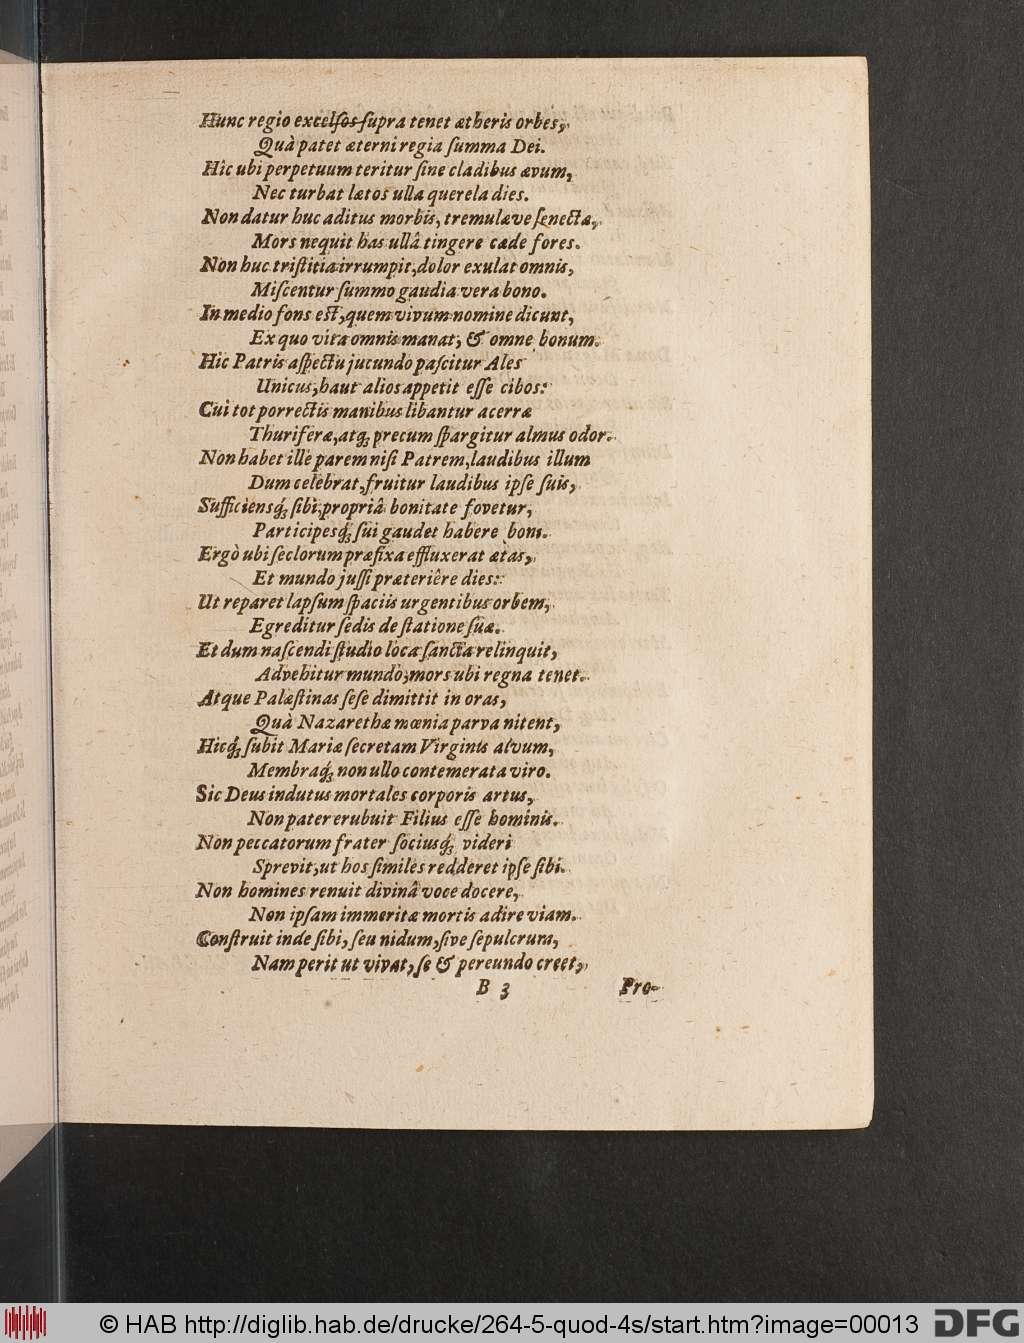 Hunc regio excelſos ſupra tenet ætheris orbes,
Quà patet æterni regia ſumma Dei.
Hîc ubi perpetuum teritur ſine cladibus ævum,
Nec turbat lætos ulla querela dies.
Non datur huc aditus morbis, tremulæve ſenectæ,
Mors nequit has ullâ tingere cæde fores.
Non huc triſtitia irrumpit, dolor exulat omnis,
Miſcentur ſummo gaudia vera bono.
In medio fons eſt, quem vivum nomine dicunt,
Ex quo vita omnis manat, & omne bonum.
Hic Patris aſpectu jucundo paſcitur Ales
Unicus, haut alios appetit eſſe cibos:
Cui tot porrectis manibus libantur acerræ
Thuriferæ, atq́ꝫ precum ſpargitur almus odor.
Non habet ille parem niſi Patrem, laudibus illum
Dum celebrat, fruitur laudibus ipſe ſuis,
Sufficiensq́ꝫ ſibi, propriâ bonitate fovetur,
Participesq́ꝫ ſui gaudet habere boni.
Ergò ubi ſeclorum præfixa effluxerat ætas,
Et mundo juſſi præteriêre dies:
Ut reparet lapſum ſpaciis urgentibus orbem,
Egreditur ſedis de ſtatione ſuæ.
Et dum naſcendi ſtudio loca ſancta relinquit,
Advehitur mundo, mors ubi regna tenet.
Atque Palæſtinas ſeſe dimittit in oras,
Quà Nazarethæ mœnia parva nitent,
Hicq́ꝫ ſubit Mariæ ſecretam Virginis alvum,
Membraq́ꝫ non ullo contemerata viro.
Sic Deus indutus mortales corporis artus,
Non pater erubuit Filius eſſe hominis.
Non peccatorum frater ſociusq́ꝫ videri
Sprevit, ut hos ſimiles redderet ipſe ſibi.
Non homines renuit divinâ voce docere,
Non ipſam immeritæ mortis adire viam.
Conſtruit inde ſibi, ſeu nidum, ſive ſepulcrum,
Nam perit ut vivat, ſe & pereundo creet,
B 3 Pro-
© HAB http://diglib.hab.de/drucke/264-5-quod-4s/start.htm?image=00013
DFG